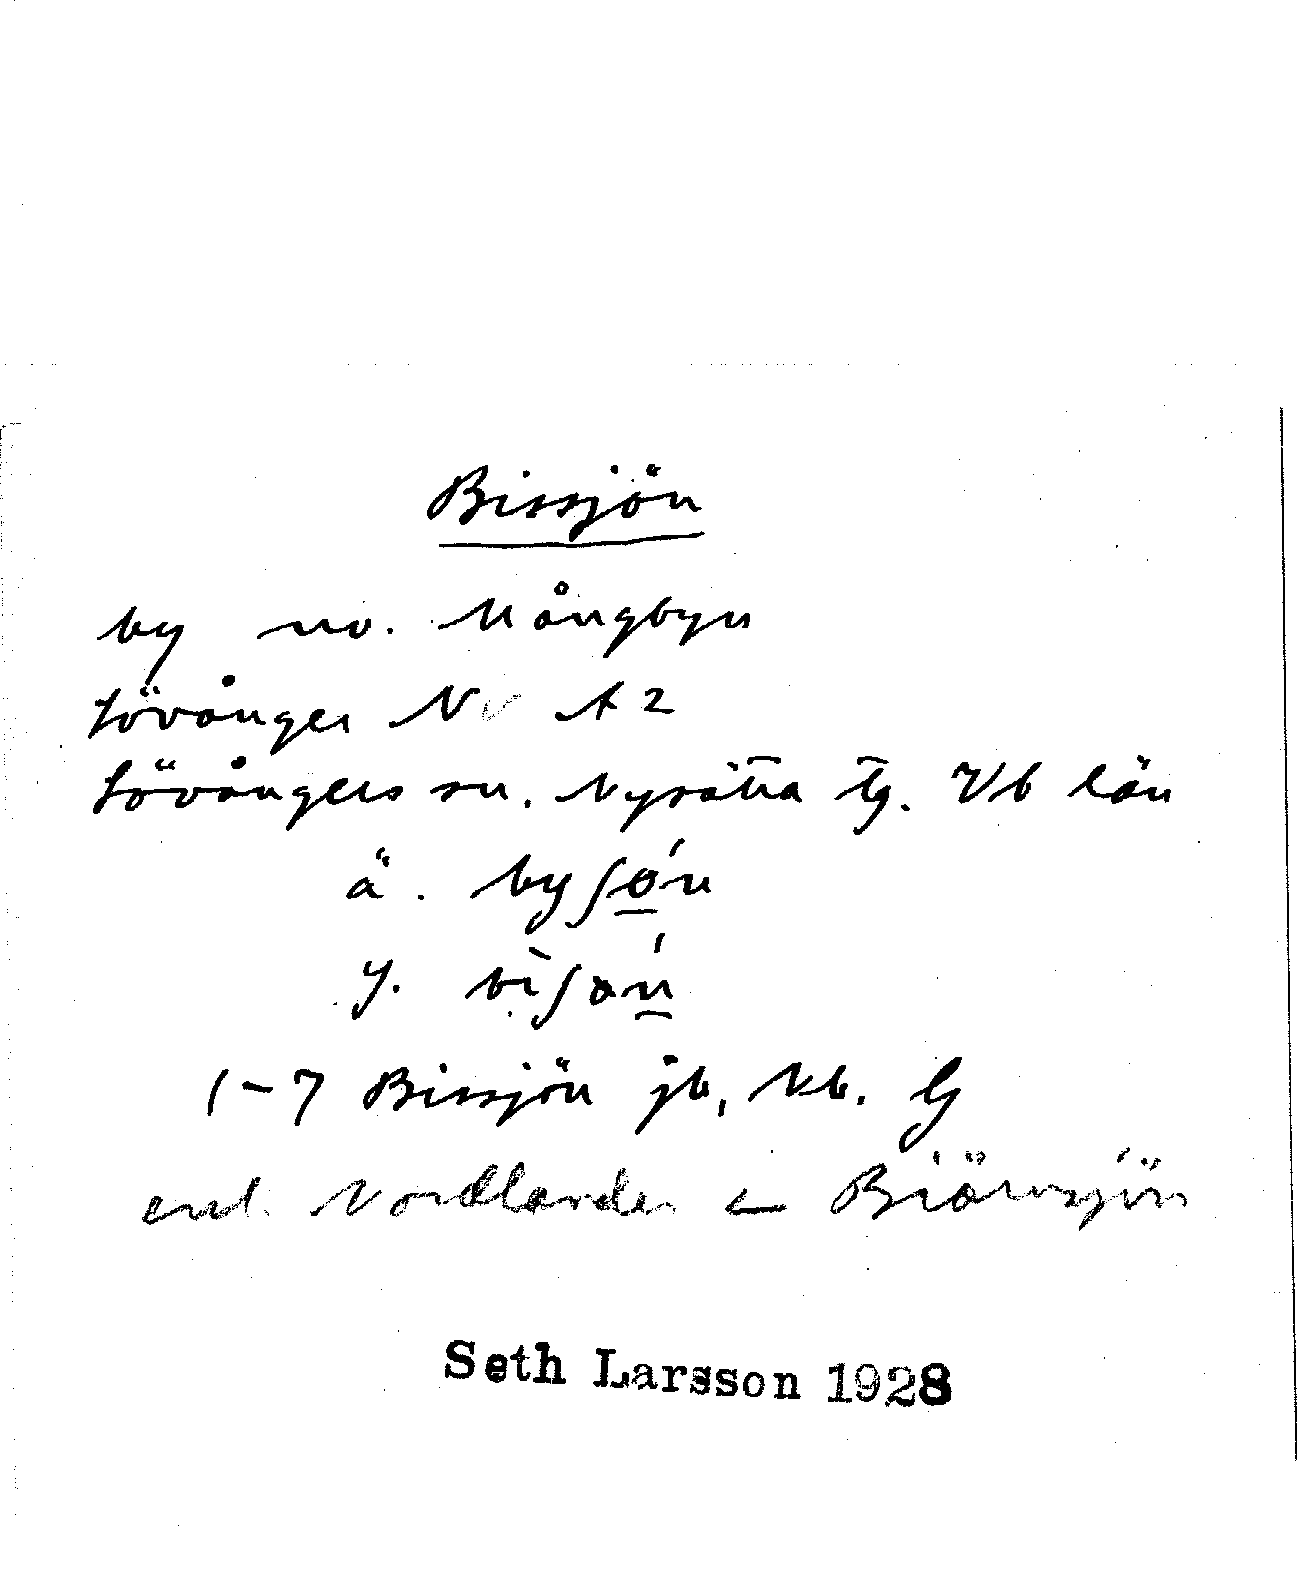 Bissjön
by no. Mångbyn
Lövånger NV A2
Lövångers sn. Nysätra tg. Vb län
ä. byʃǿn
y. bìʃøń
1-7 Bissjön jb, kb. G
enl. Nordlander < Biörnsjön
Seth Larsson 1928